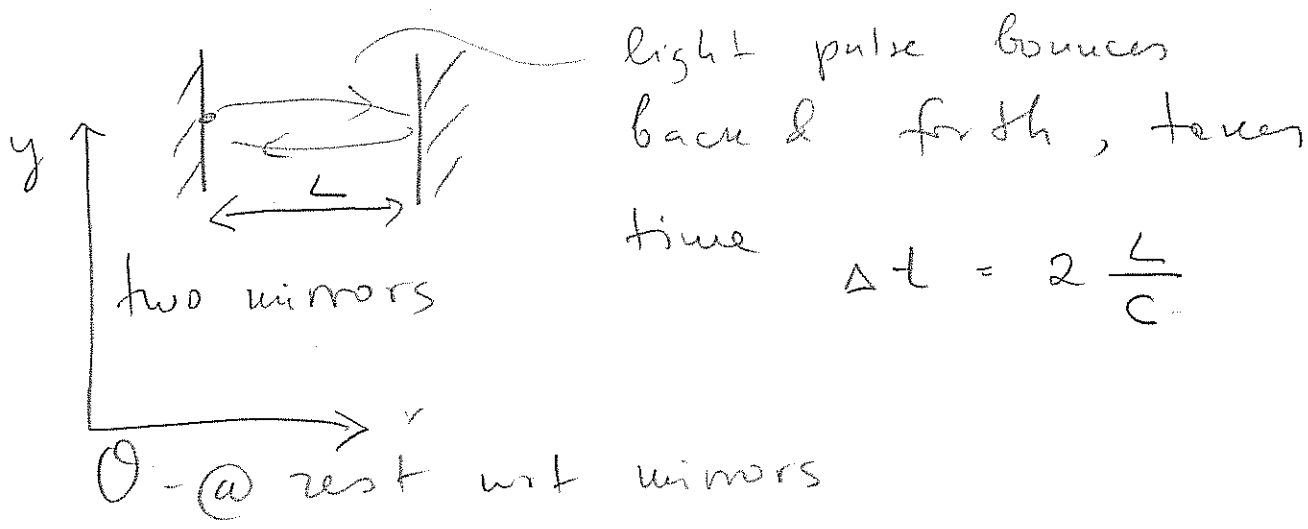 light pulse bounces
back & forth, takes
time Δt = 2 L/C
y
L
two mirrors
O - @ rest wrt mirrors